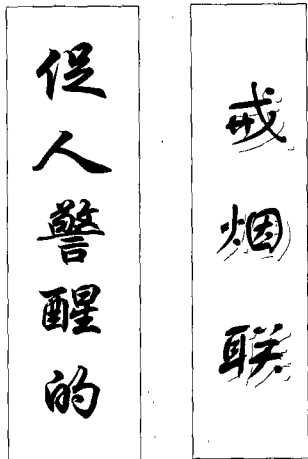 促人警醒的
戒烟联